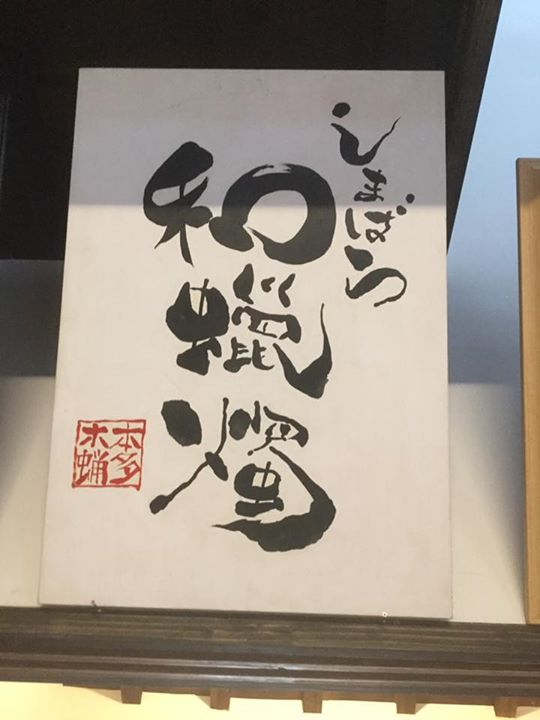 しまばら
和蠟燭
本多
木蝋